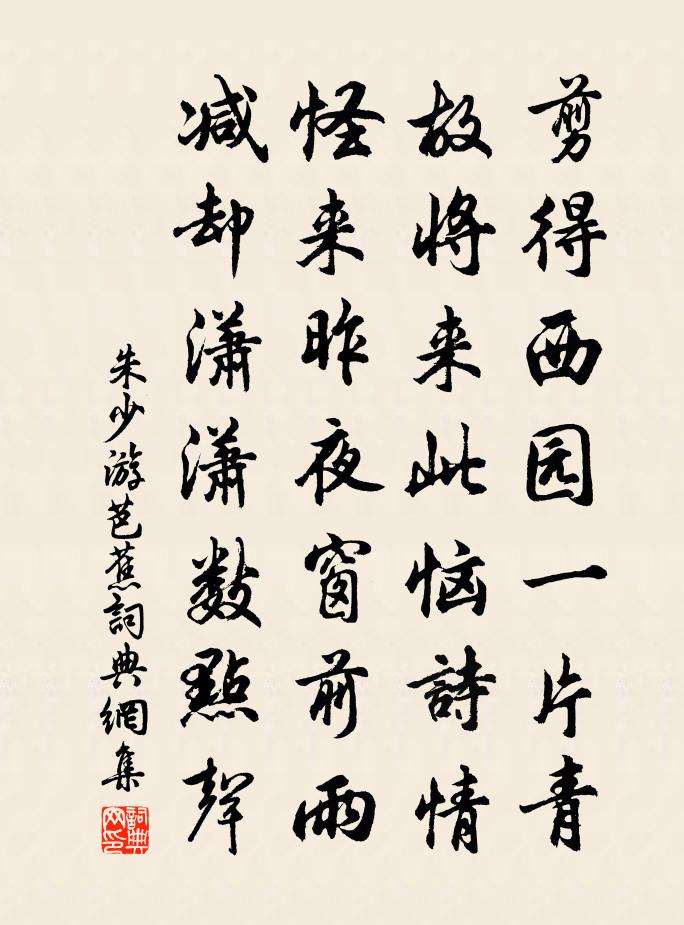 剪得西园一片青
故将来此恼詩情
怪来昨夜窗前雨
减却潇潇數點聲
朱少游芭蕉詞典網集
詞典
网印